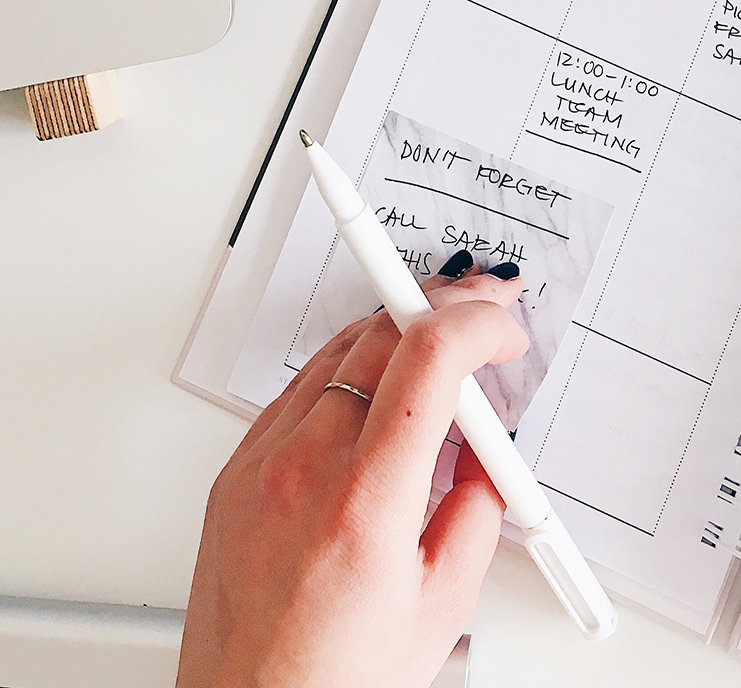 12:00-1:00
LUNCH
TEAM
MEETING
DON'T FORGET
CALL SARAH
THIS